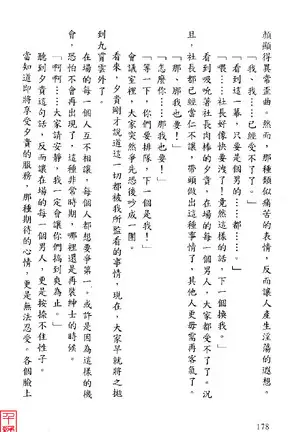 顏顯得異常歪曲。然而，那種類似痛苦的表情，反而讓人產生淫蕩的遐想。
「我、我……已經受不了了！」
「看到這一幕，只要是個男的……都……。」
「喂……社長好像快要洩了！竟然這樣的話，下一個換我。」
看到吸吮著社長肉棒的夕貴，在場的每一個男人，大家都受不了了。況
且，社長都已經當仁不讓，帶頭做出這種事情了，其他人更毋需再客氣了。
「那、那我也要！」
「怎麼你……那我也要！」
「等一下，你們要排隊，下一個是我！」
會議室裡，大家突然爭先恐後吵成一團。
看來，夕貴剛才說過這一切都被我所監看的事情，現在，大家早就將之拋
到九霄雲外了。
在場的每一個人互不相讓，每個人都想要爭第一。或許是因為這樣的機
會，恐怕不會再出現了，這種非常時期，哪裡還是再裝紳士的時候。
「啊啊……大家請安靜，我一定會讓你們搞到爽為止。」
聽到夕貴這句話，反而讓在場的每一個男人，更是按捺不住性子。
當知道即將享受夕貴的服務，那種期待的心情，更是無法忍受。各個臉上
178